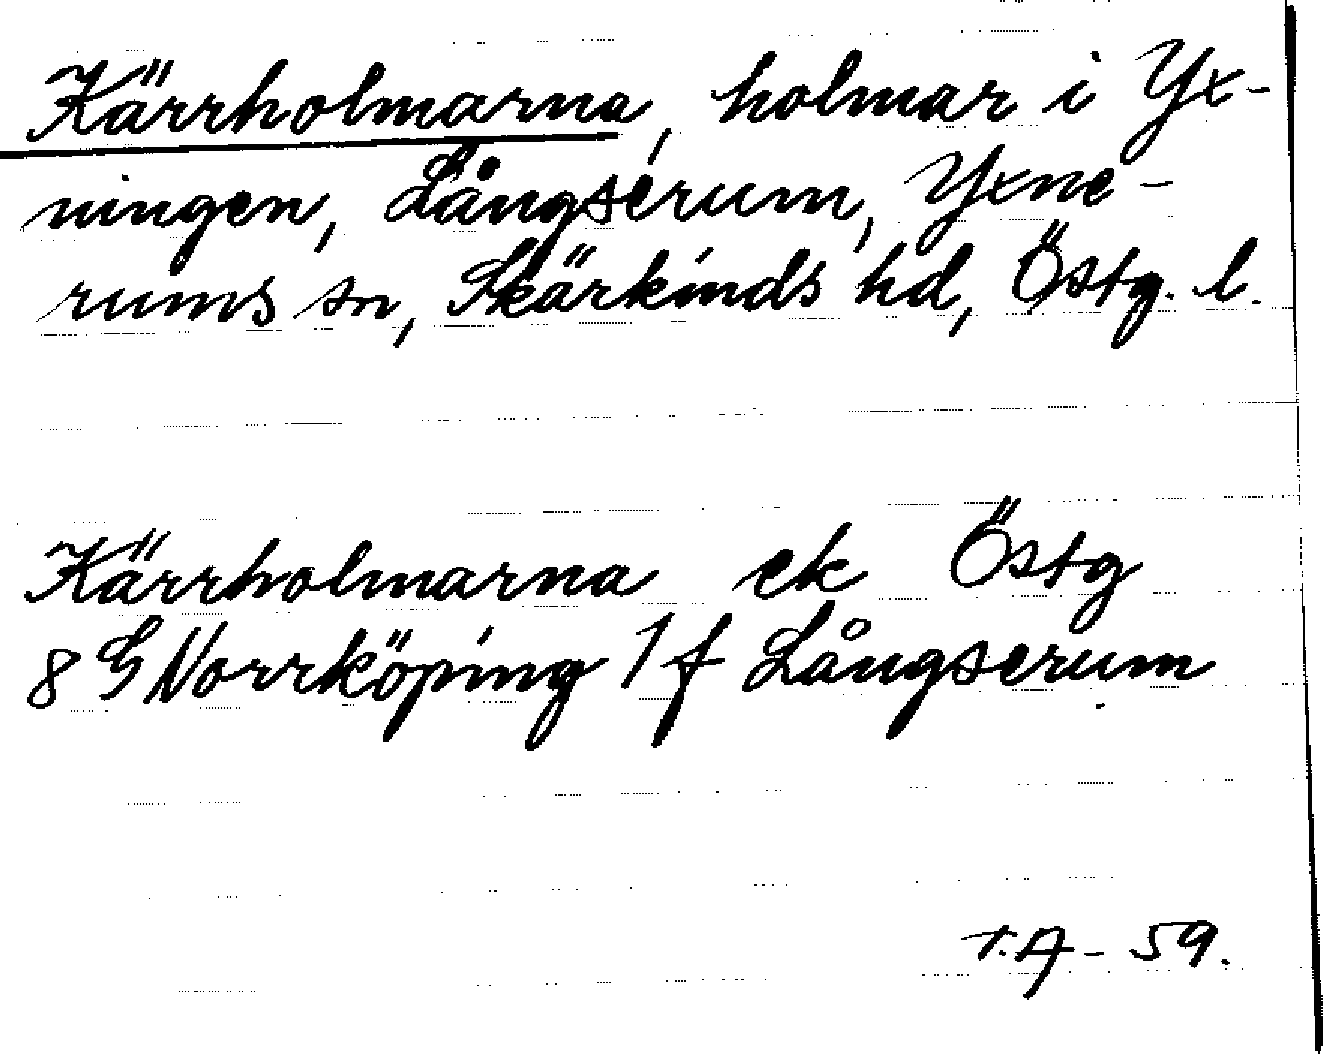 Kärrholmarna, holmar i Yx-
ningen, Långserum, Yxne-
rums sn, Skärkinds hd, Östg. l.
Kärrholmarna ek Östg
8 G Norrköping 1 f Långserum
T.A - 59.